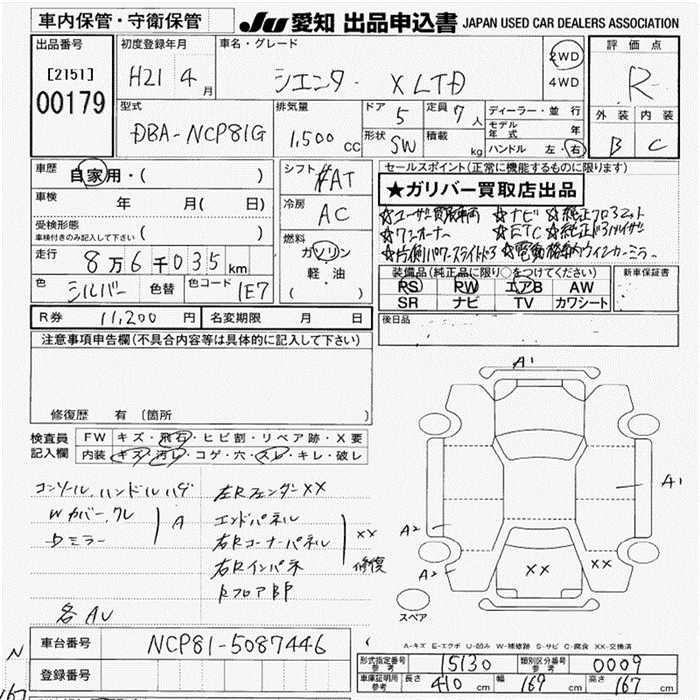 車内保管・守衛保管
Ju 愛知 出品申込書 JAPAN USED CAR DEALERS ASSOCIATION
出品番号
[2151]
00179
初度登録年月
H21 年 4 月
車名・グレード
シエンタ・XLTD
2WD
4WD
評価点
R
外装 内装
B C
型式
DBA-NCP81G
排気量
1,500 CC
ドア 5
定員 7 人
形状 SW
積載 kg
ディーラー・並行
モデル年式 年
ハンドル 左・右
車歴
自家用・( )
車検 年 月( 日)
受検形態
車検付きのみ記入して下さい ( )
走行 8万6千035km
色 シルバー 色替 色コード 1E7
シフト
AT
冷房
AC
燃料
ガソリン
軽・油
( )
セールスポイント(正常に機能するものに限ります)
★ガリバー買取店出品
☆ユーザー買取車両 ☆ナビ ☆純正フロアマット
☆ワンオーナー ☆ETC ☆純正ドアバイザー
☆片側パワースライドドア ☆電動格納ウインカーミラー
装備品(純正品に限り○をつけてください)
PS PW エアB AW
SR ナビ TV カワシート
新車保証書
R券 11,200 円 名変期限 月 日
後日品
注意事項申告欄(不具合内容等は具体的に記入して下さい)
修復歴 有 〔箇所 〕
検査員記入欄
FW キズ・飛石・ヒビ割・リペア跡・X要
内装 キズ・汚レ・コゲ・穴・スレ・キレ・破レ
コンソール,ハンドルハゲ
Wカバー,ワレ
Dミラー
A
各AU
左Rフェンダー××
エンドパネル
右Rコーナーパネル
右Rインパネ
RフロアBP
××
修復
A1
A1
A2
A2
××
××
スペア
A-キズ E-エクボ U-凹み W-補修跡 S-サビ C-腐食 XX-交換済
車台番号 NCP81-5087446
登録番号
形式指定番号 参考 15130
類別区分番号 参考 0009
車庫証明用 参考 長さ 410 cm 幅 169 cm 高さ 167 cm
N
167